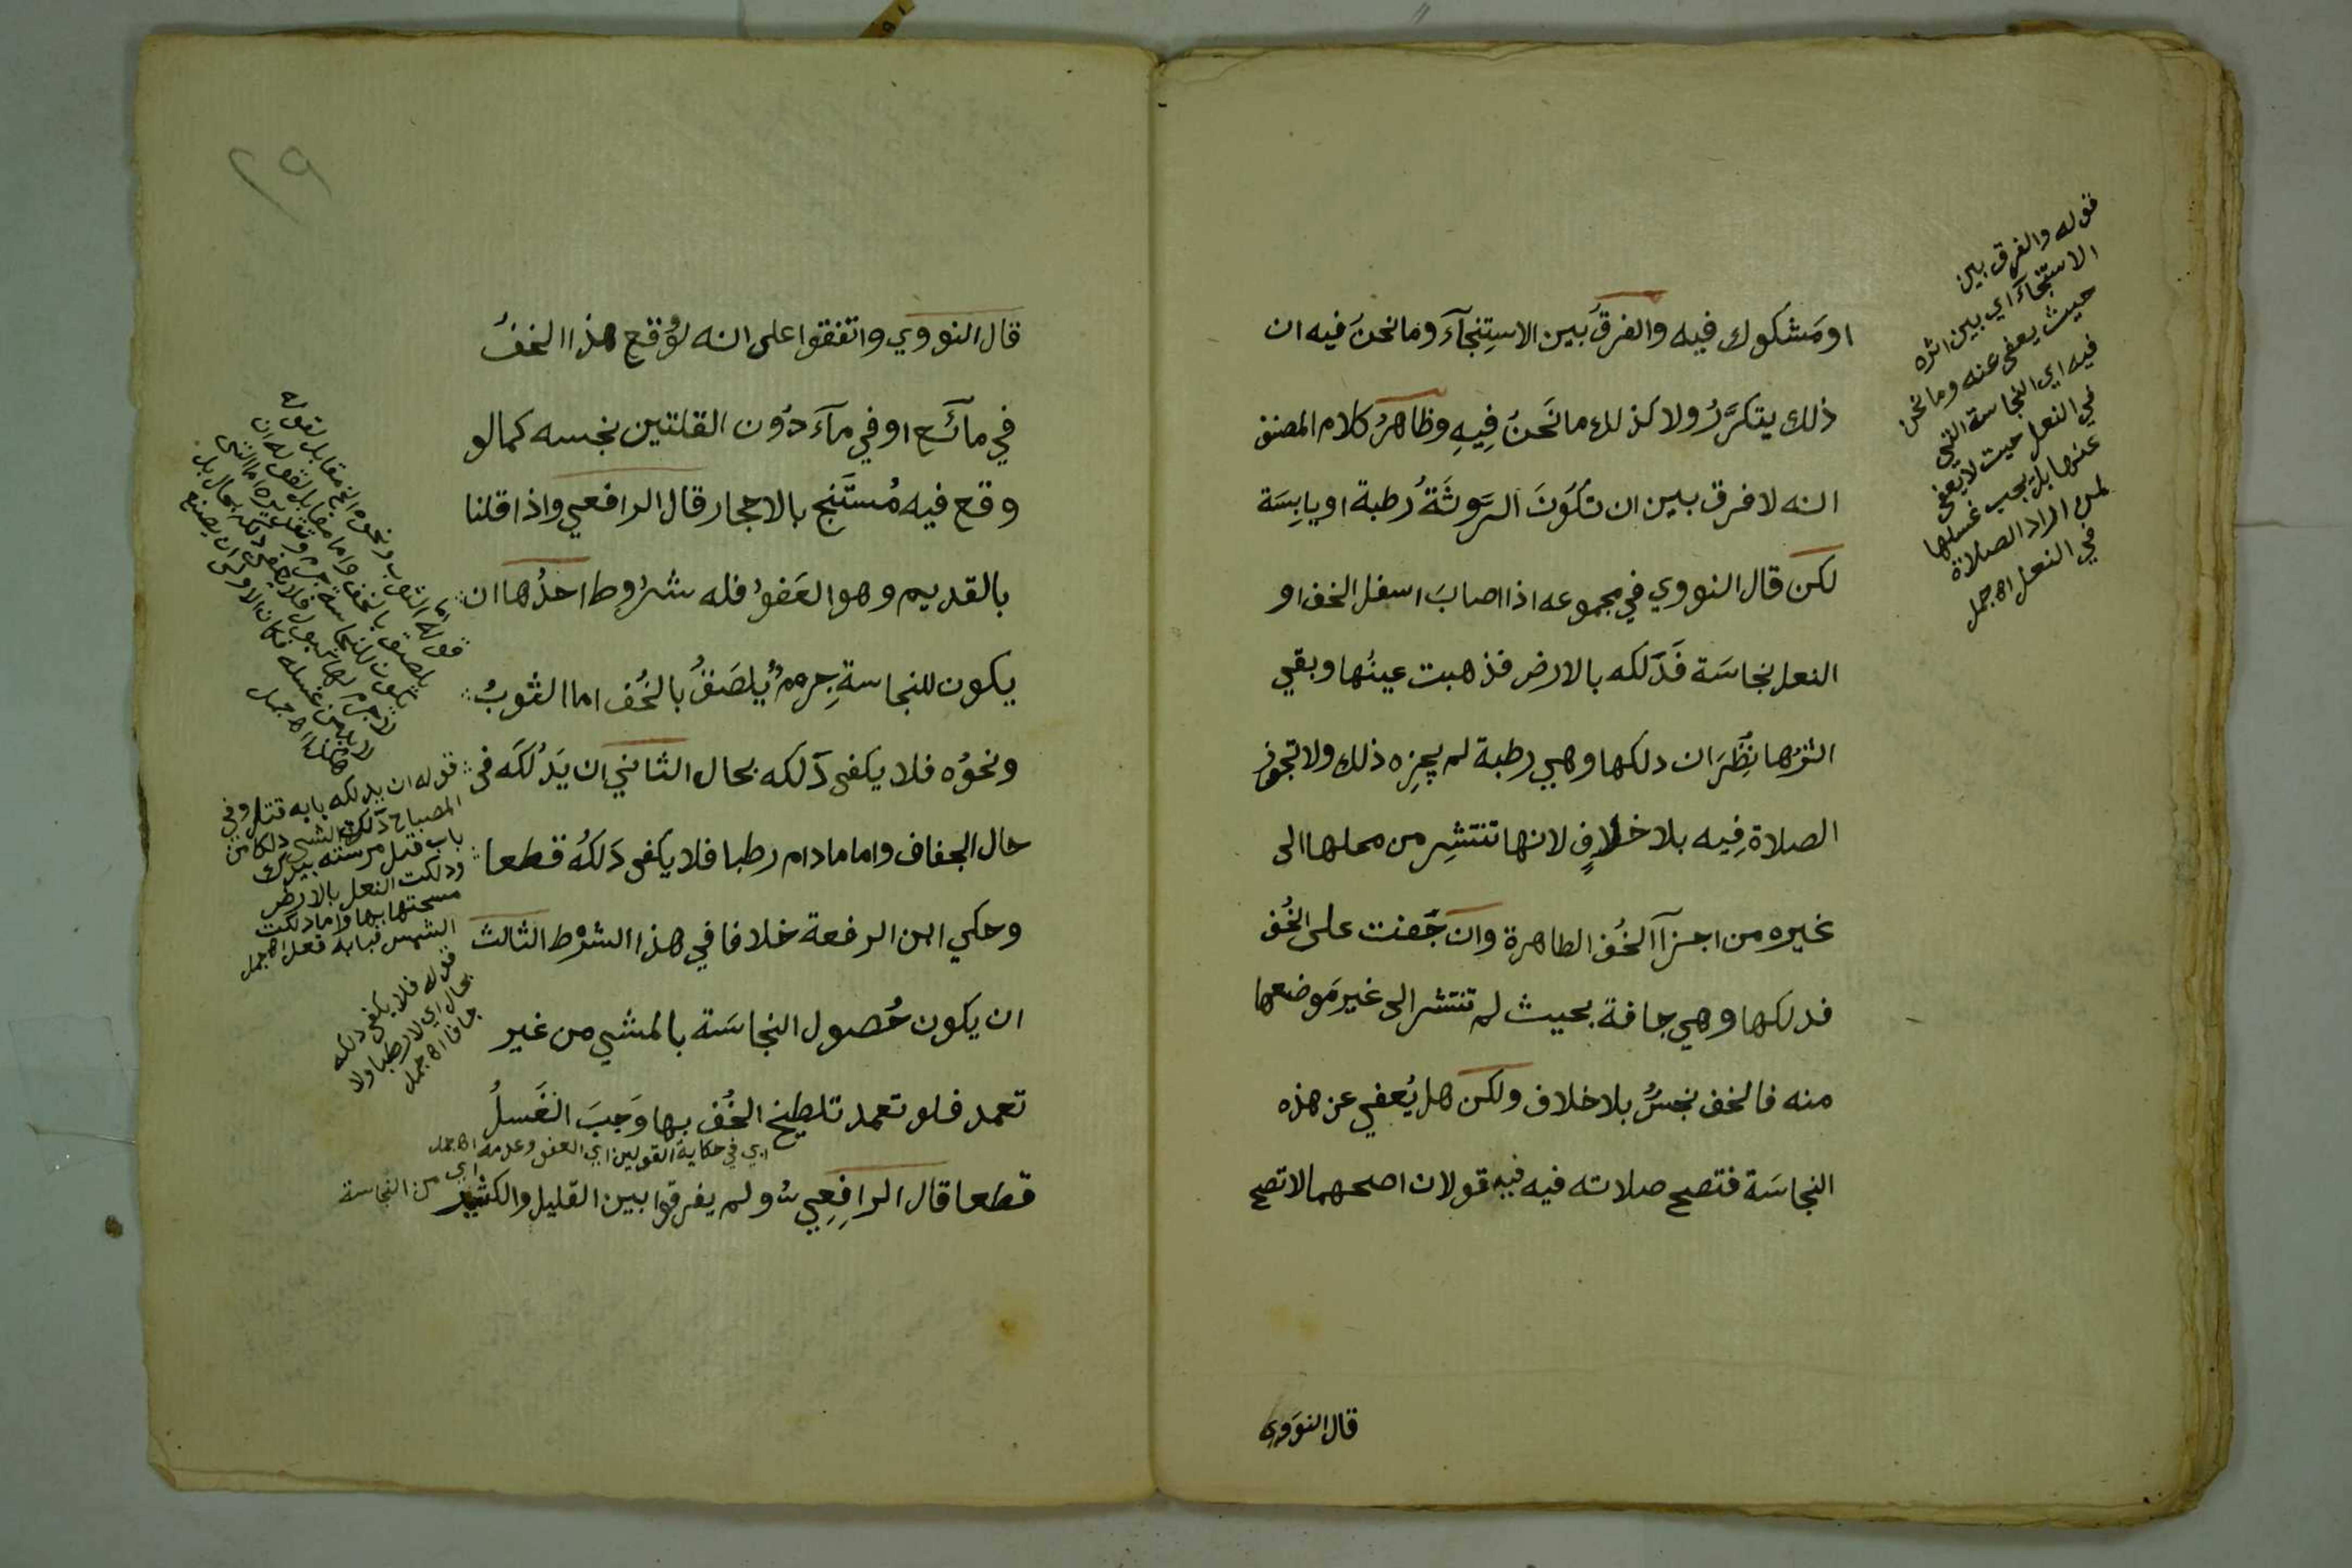 او مَشكوك فيه والفرقُ بين الاستِنجآءَ وما نحنُ فيه ان
ذلك يتكرَّرُ ولا كذلك ما نَحنُ فِيهِ وظاهرُ كلام المصنف
انه لا فرق بين ان تكُونَ الرَوثَةُ رُطبة او يابِسَة
لكن قال النووي في مجموعه اذا اصابَ اسفل الخف او
النعل نجاسَة فَدَلكه بالارض فذهبت عينُها وبقي
اثرُها نُظِرَ ان دلكها وهي رطبة لم يجزِه ذلك ولا تجوز
الصلاة فِيه بلا خلافٍ لانها تنتشِر من محلها الى
غيره من اجزآ الخُف الطاهرة وان جَفت على الخُف
فدلكها وهي جافة بحيث لم تنتشر الى غير مَوضعها
منه فالخف نجسٌ بلا خلاف ولكن هل يُعفي عن هذه
النجاسَة فتصح صلاته فيه فيه قولان اصحهما لا تصح
قال النووي
قوله والفرق بين
الاستنجآءَ اي بين اثره
حيث يعفى عنه وما نحن
فيه اي النجاسة التي
في النعل حيث لا يعفى
عنها بل يجب غسلها
لمن اراد الصلاة
في النعل اه جمل
٢٩
قال النووي واتفقوا على انه لو وُقع هذا الخفُ
في مآئَع او في مآءَ دُون القلتين نجسه كما لو
وقع فيه مُستَنجٍ بالاحجار قال الرافعي واذا قلنا
بالقديم وهو العَفوُ فله شرُوط احدُها ان
يكون للنجاسةِ جِرمٌ يُلصَقُ بالخُف اما الثوبُ
ونحوُه فلا يكفى دَلكه بحال الثاني ان يَدُلكَه في
حال الجفاف واما مادام رطبا فلا يكفى دَلكُه قطعا
وحكي ابن الرفعة خلافا في هذا الشرط الثالث
ان يكون حُصول النجاسَة بالمشي من غير
تعمد فلو تعمد تلطيخ الخُف بها وَجبَ الغَسلُ
اي في حكاية القولين اي العفو وعدمه اه جمل
قطعا قال الرافِعِي ولم يفرقوا بين القليل والكثير
اي من النجاسة
قوله اما الثوب ونحوه الخ مقابل لقوله
يلصق بالخف واما مقابل لقوله ان
يكون للنجاسة جرم
لا جرم لها كبول فلا يكفي دلكه بحال بل
لابد من غسله فكان الاولى ان يصنع
اه جمل
قوله ان يدلكه بابه قتل وفي
المصباح دلكت الشي دلكا من
باب قتل مرسته بيدك
ودلكت النعل بالارض
مسحتها بها واما دلكت
الشمس فبابه قعد اه جمل
قوله فلا يكفى دلكه
بحال اي لا رطبا ولا
جافا اه جمل